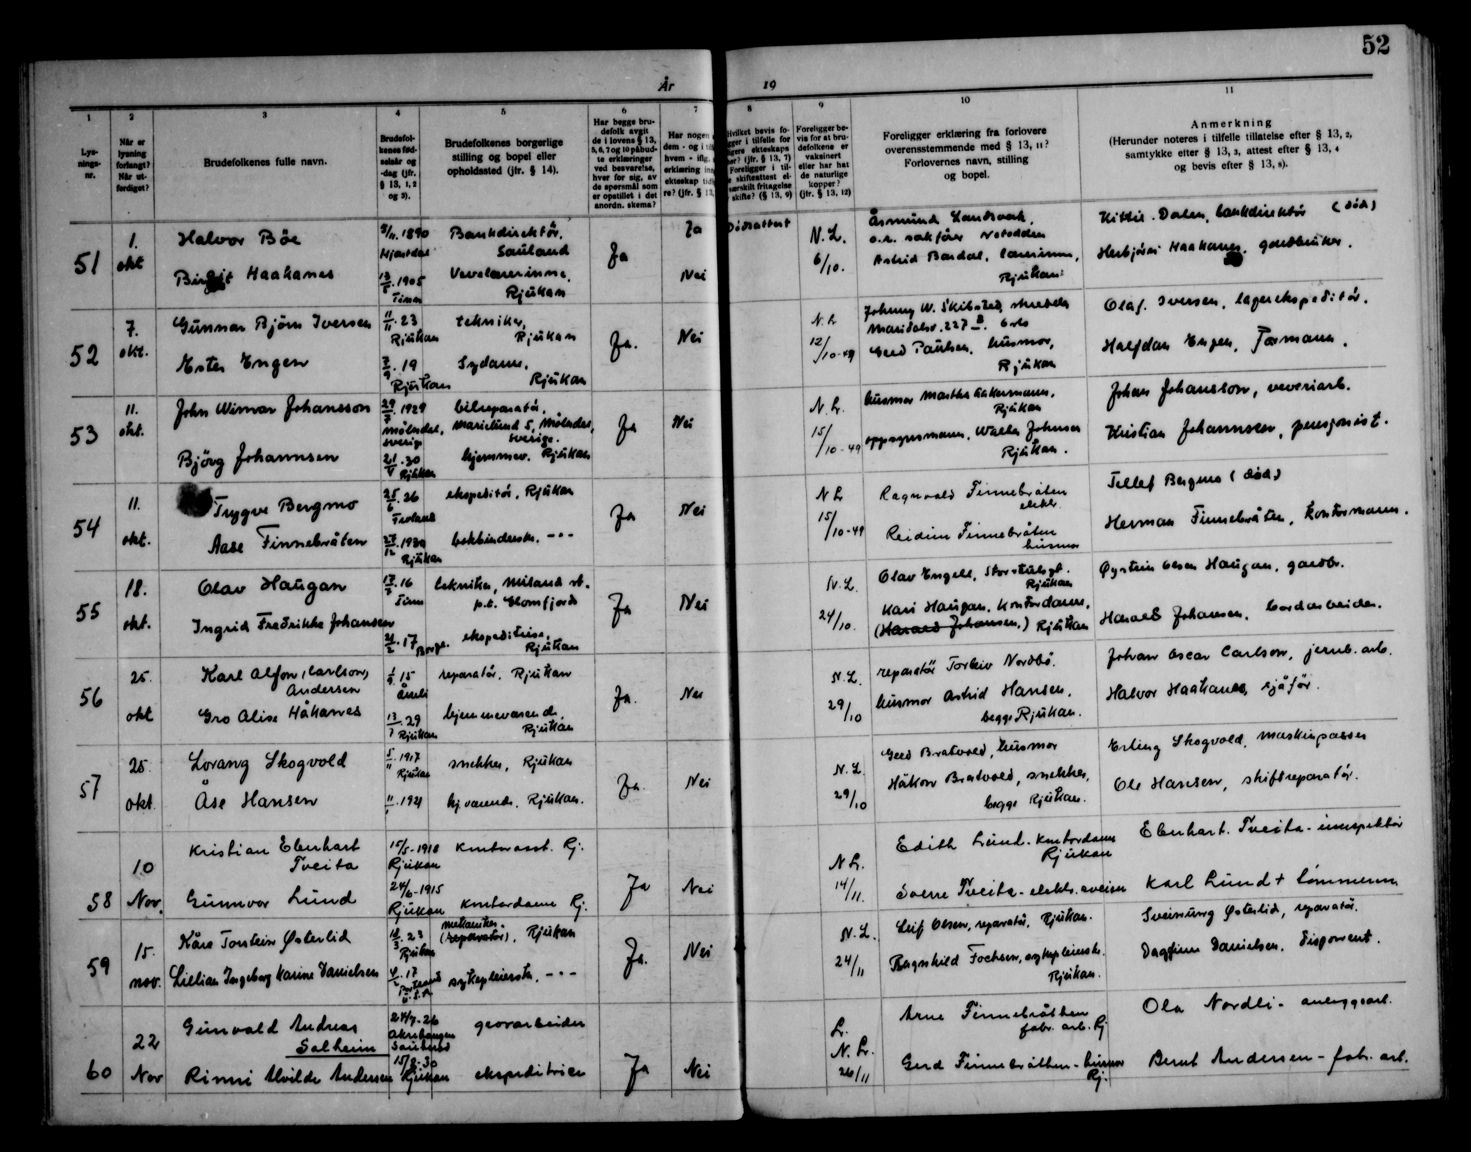 52
År
19
1
2
3
4
5
6
7
8
9
10
11
Lysningsnr.
Når er lysning forlangt? Når utferdiget?
Brudefolkenes fulle navn.
Brudefolkenes fødselsår og -dag (jfr. § 13, 1, 2 og 3).
Brudefolkenes borgerlige stilling og bopel eller opholdssted (jfr. § 14).
Har begge brudefolk avgit de i lovens § 13, 5, 6, 7 og 10 påbudte erklæringer ved besvarelse, hver for sig, av de spørsmål som er opstillet i det anordn. skema?
Har nogen
dem - og i
hvem - iflg.
erklæring
ekteskap
re? (jfr. § 13,
Hvilket bevis fo-
ekteskaps
(jfr. § 13, 7)
Foreligger i til-
skifteattest
fritagelse
skifte? (§ 13, 9)
Foreligger bevis for at brudefolkene er vaksinert eller har hat de naturlige kopper? (jfr. § 13, 12)
Foreligger erklæring fra forlovere overensstemmende med § 13, 11? Forlovernes navn, stilling og bopel.
Anmerkning
(Herunder noteres i tilfelle tillatelse efter § 13, 2, samtykke efter § 13, 3, attest efter § 13, 4 og bevis efter § 13, 8).
51
1. okt
Halvor Bøe
1890
Bankdirektør, Sauland
Ja
Ja
Dødsattest
N.L. 6/10.
Åsmund
Notodden
(død)
Haakanes
1905
Tinn
Vevelærerinne, Rjukan
Nei
Astrid Bardal, lærerinne, Rjukan
Herbjørn Haakanes, gardbruker.
52
7. okt.
Gunnar Bjørn Iversen
11/11.23 Rjukan
tekniker, Rjukan
Ja.
Nei
N.L 12/10-49
Johnny W. Skibsted,
Maridalsv. 227 B. Oslo
Olaf Iversen, lagerekspeditør.
Ester Engen
7/9.19 Rjukan
Sydame, Rjukan
Gerd Paulsen, husmor, Rjukan
Halfdan Engen, Formann.
53
11. okt.
John Wimar Johansson
29/7.1929
Mölndal, Sverige
bilreparatør,
Marielund 5, Mölndal, Sverige.
Ja
Nei
N.L. 15/10-49
husmor Martha Aakermann, Rjukan
Johan Johansson, veveriarb.
Bjørg Johannsen
.30 Rjukan
hjemmev. Rjukan
oppsynsmann, Walter Johnsen Rjukan.
Kristian Johannsen, pensjonist.
54
11. okt.
Trygve Bergmo
25/6.26
ekspeditør, Rjukan
Ja
Nei
N L 15/10-49
Ragnvald Finnebråten elektr.
Tellef Bergmo (død)
Aase Finnebråten
27/12.1930 Rjukan
bokbinderske, -"-
Reidun Finnebråten husmor
Herman Finnebråten, Kontormann.
55
18. okt.
Olav Haugan
.16 Tinn
tekniker, Miland st. p.t. Glomfjord
Ja
Nei
N.L. 24/10.
Olav Engell, Rjukan
Øystein Olsen Haugan, gardbr.
Ingrid Fredrikke Johansen
21/2.17 Borge.
ekspeditrise, Rjukan
Kari Haugan, Kontordame,
(Harald Johansen,) Rjukan
Harald Johansen, bordarbeider.
56
25. okt
Karl Alfon, Carlson, Andersen
.15
reparatør, Rjukan
Ja.
Nei
N.L. 29/10
reparatør Torleiv Nordbø.
Johan Oscar Carlson, jernb. arb.
Gro Alise Håkanes
13/7.29 Rjukan
hjemmeværende, Rjukan
husmor Astrid Hansen, begge Rjukan.
Halvor Haakanes, sjåfør.
57
25. okt.
Lorang Skogvold
5/11.1917 Rjukan
snekker, Rjukan
Ja.
Nei
N.L. 29/10
Gerd Bratvold, husmor
Erling Skogvold, maskinpasser
Åse Hansen
.1921
hj.værende. Rjukan.
Håkon Bratvold, snekker, begge Rjukan.
Ole Hansen, skiftreparatør.
58
10 Nov.
Kristian Eberhart Tveita
15/5-1918 Rjukan
kontorasst. Rj.
Ja
Nei
N L. 14/11.
Edith Lund. Kontordame Rjukan
Eberhart. Tveita - innspektør
Gunnvor Lund
24/6-1915 Rjukan
kontordame Rj.
Sverre Tveita - elektr. sveiser
Karl Lund + tømmerm
59
15. nov.
Kåre Torstein Østerlid
18/3.23 Rjukan
mekaniker (reparatør), Rjukan
Ja.
Nei
N.L. 24/11
Leif Olsen, reparatør, Rjukan.
Sveinung Østerlid, reparatør.
Lillian Ingeborg Karine Danielsen
.17
sykepleierske, -"-
Ragnhild Fochsen, sykepleierske. Rjukan.
Dagfinn Danielsen, Disponent.
60
22 Nov
Gunvald Andreas Solheim
24/7-26
Akrehaugen Sauherad
gravarbeider
Ja
Nei
L. N.L. 26/11
Arne Finnebråthen fabr. arb. Rj
Ola Nordli - anleggsarb.
Rinni Alvilde Andersen
15/8-30 Rjukan
ekspeditrise
Gerd Finnebråthen - husmor Rj.
Bernt Andersen - fabr. arb.